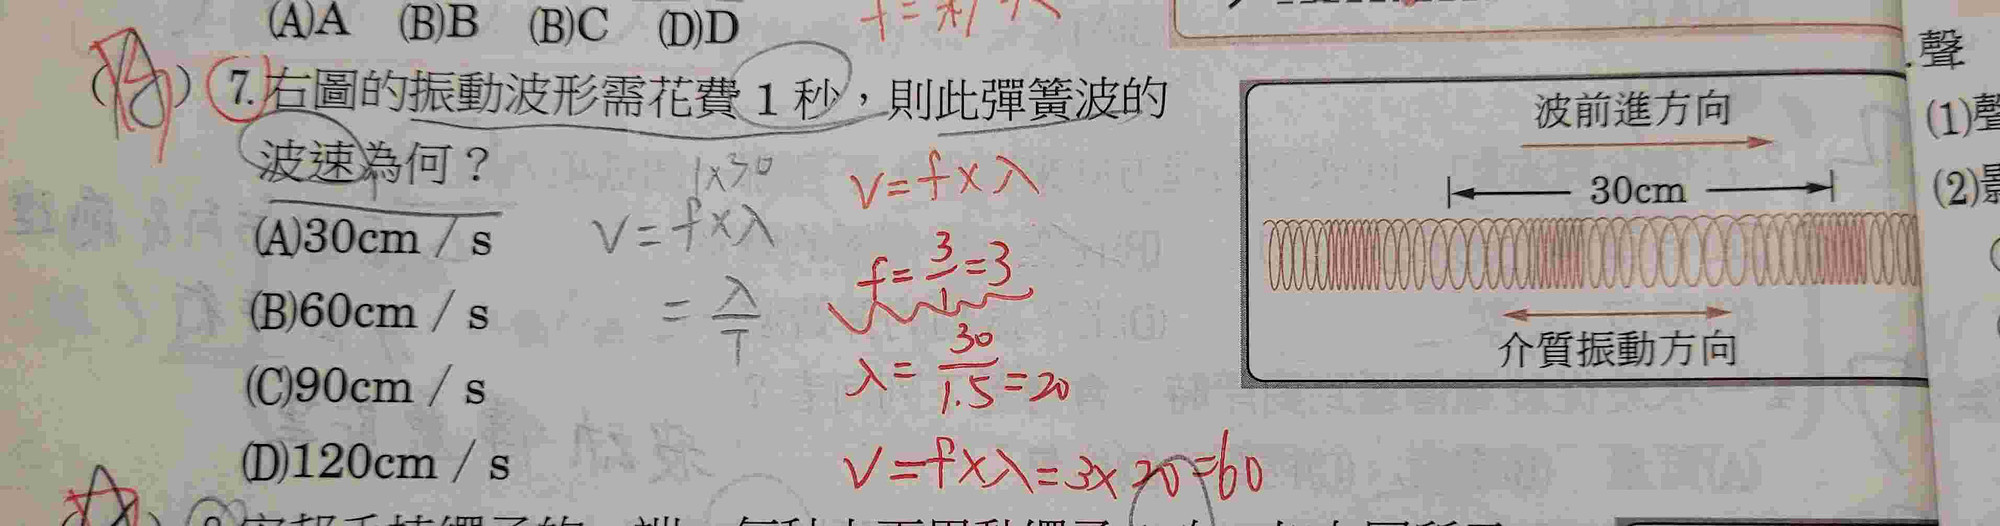 (A)A (B)B (B)C (D)D
7.右圖的振動波形需花費 1 秒，則此彈簧波的
波速為何？
(A)30cm / s
(B)60cm / s
(C)90cm / s
(D)120cm / s
1×30
V=f×λ
=λ/T
V=f×λ
f=3/1=3
λ=30/1.5=20
V=f×λ=3×20=60
波前進方向
30cm
介質振動方向
聲
(1)聲
(2)